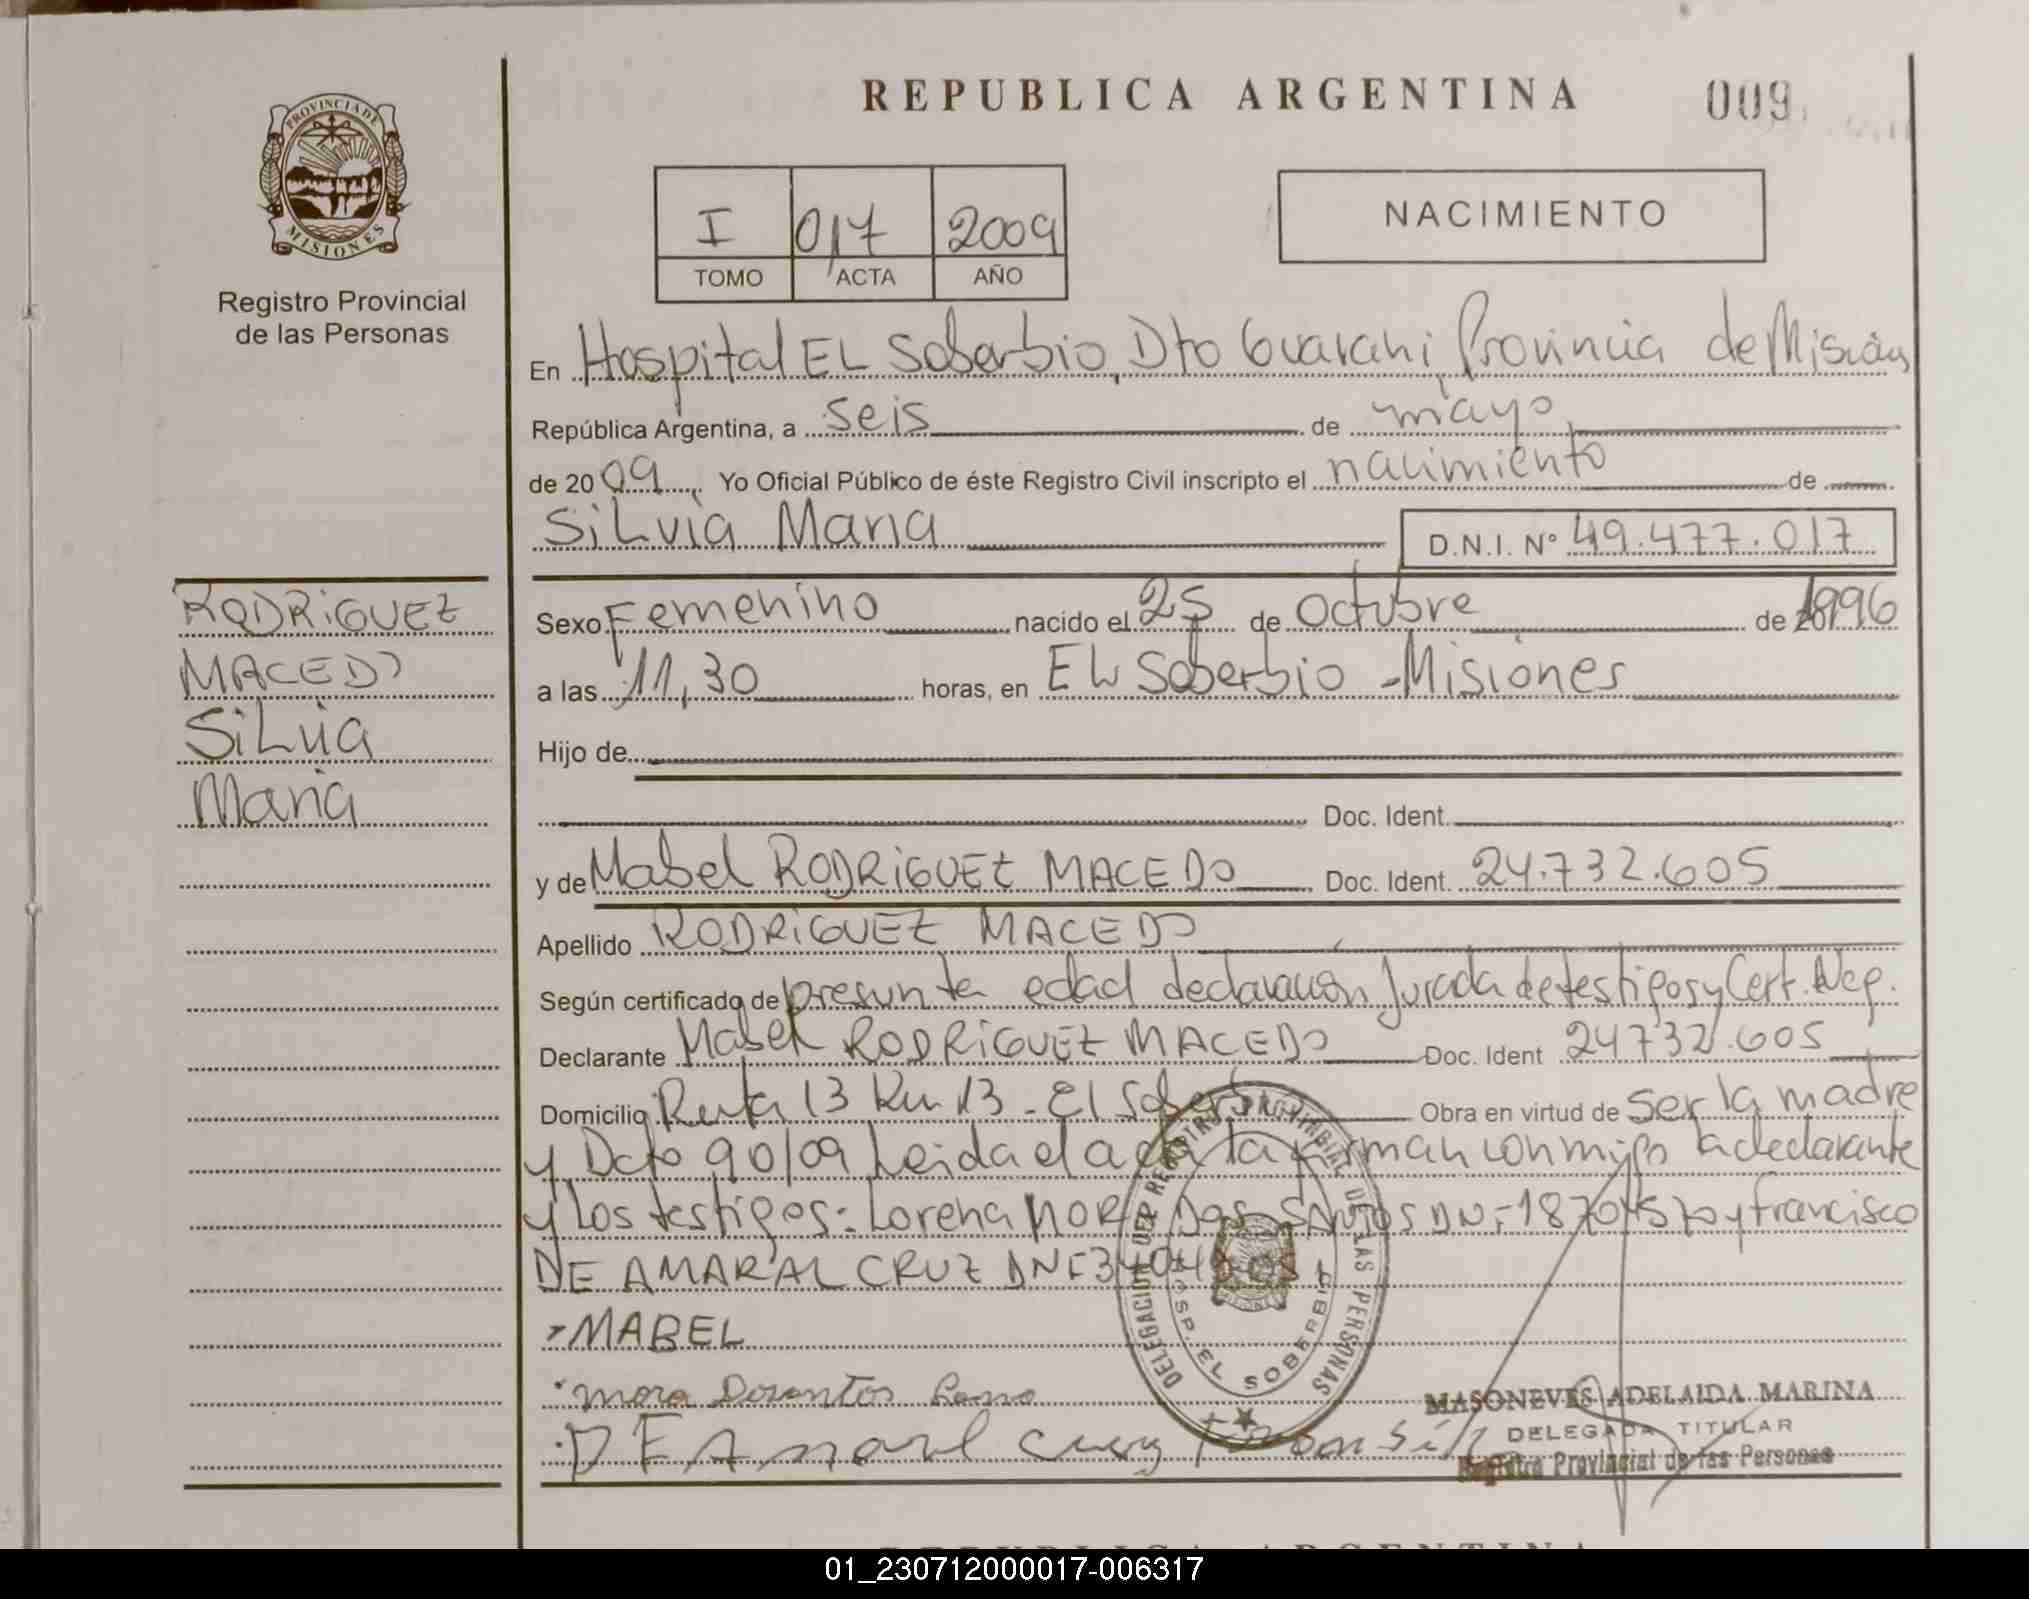 REPUBLICA ARGENTINA
009
PROVINCIA DE
MISIONES
Registro Provincial
de las Personas
I 017 2009
TOMO ACTA AÑO
NACIMIENTO
En Hospital EL Soberbio, Dto Guarani, Provincia de Misiones
República Argentina, a seis de mayo
de 2009, Yo Oficial Público de éste Registro Civil inscripto el nacimiento de
SiLvia Maria
D.N.I. Nº 49.477.017
RODRiGUEZ
MACEDO
SiLvia
Maria
Sexo Femenino nacido el 25 de Octubre de 1996
a las 11,30 horas, en EL Soberbio - Misiones
Hijo de
Doc. Ident.
y de Mabel RODRiGUEZ MACEDO Doc. Ident. 24.732.605
Apellido RODRiGUEZ MACEDO
Según certificado de presunta edad declaración Jurada de testigos y Cert. Neg.
Declarante Mabel RODRiGUEZ MACEDO Doc. Ident 24732.605
Domicilio Ruta 13 Km 13 - El Soberb Obra en virtud de ser la madre
y Dcto 90/09 Leida el acta la firman conmigo la declarante
y los testigos: Lorena MOR DOS SANTOS DNI 18704570 y Francisco
DE AMARAL CRUZ DNI
MABEL
mora Dosantos
DE Amaral cruz
DELEGACION DEL REGISTRO PROVINCIAL DE LAS PERSONAS
HOSP. EL SOBERBIO
MASONEVES ADELAIDA MARINA
DELEGADA TITULAR
Registro Provincial de las Personas
REPUBLICA ARGENTINA
01_230712000017-006317